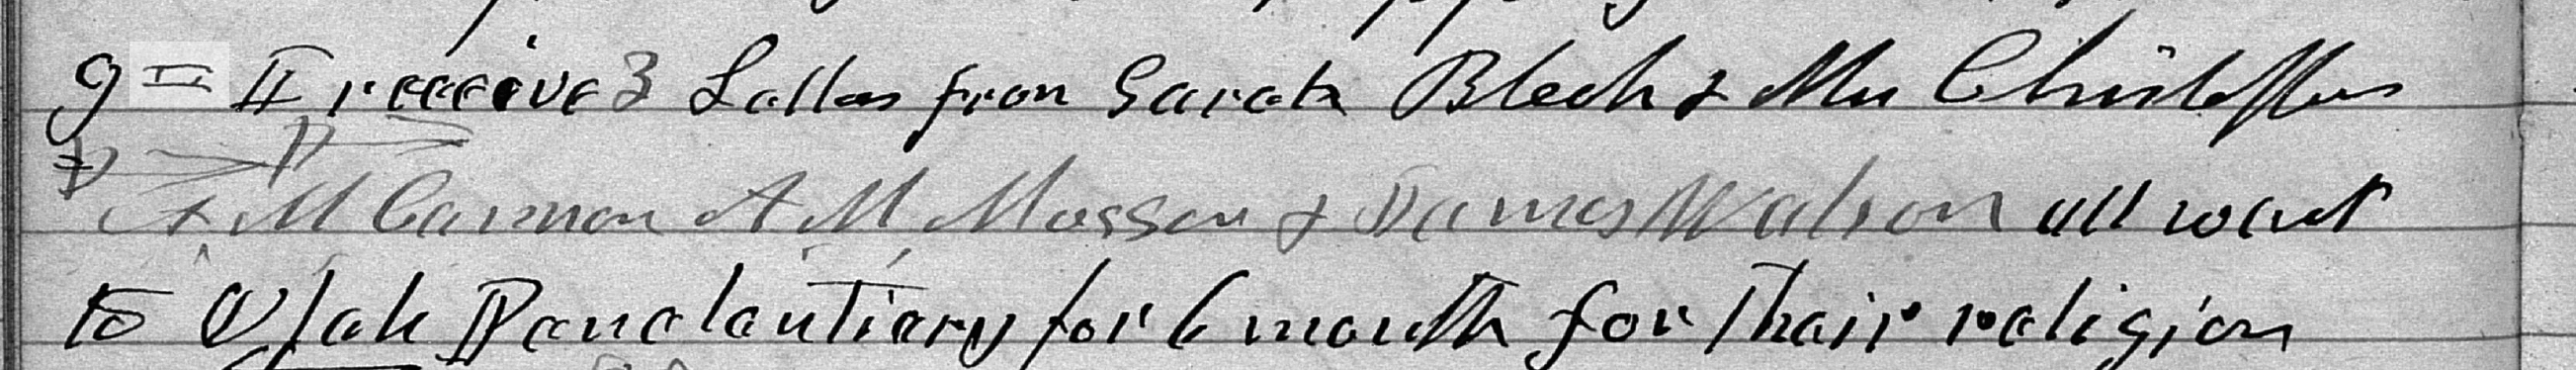 9 = I receive 3 Lallas from Sarah Blech & Mr Christoffers
A M Cannon A M Mussen & James Watson all want
to Utah Panalantiary for 6 month for Thair religion